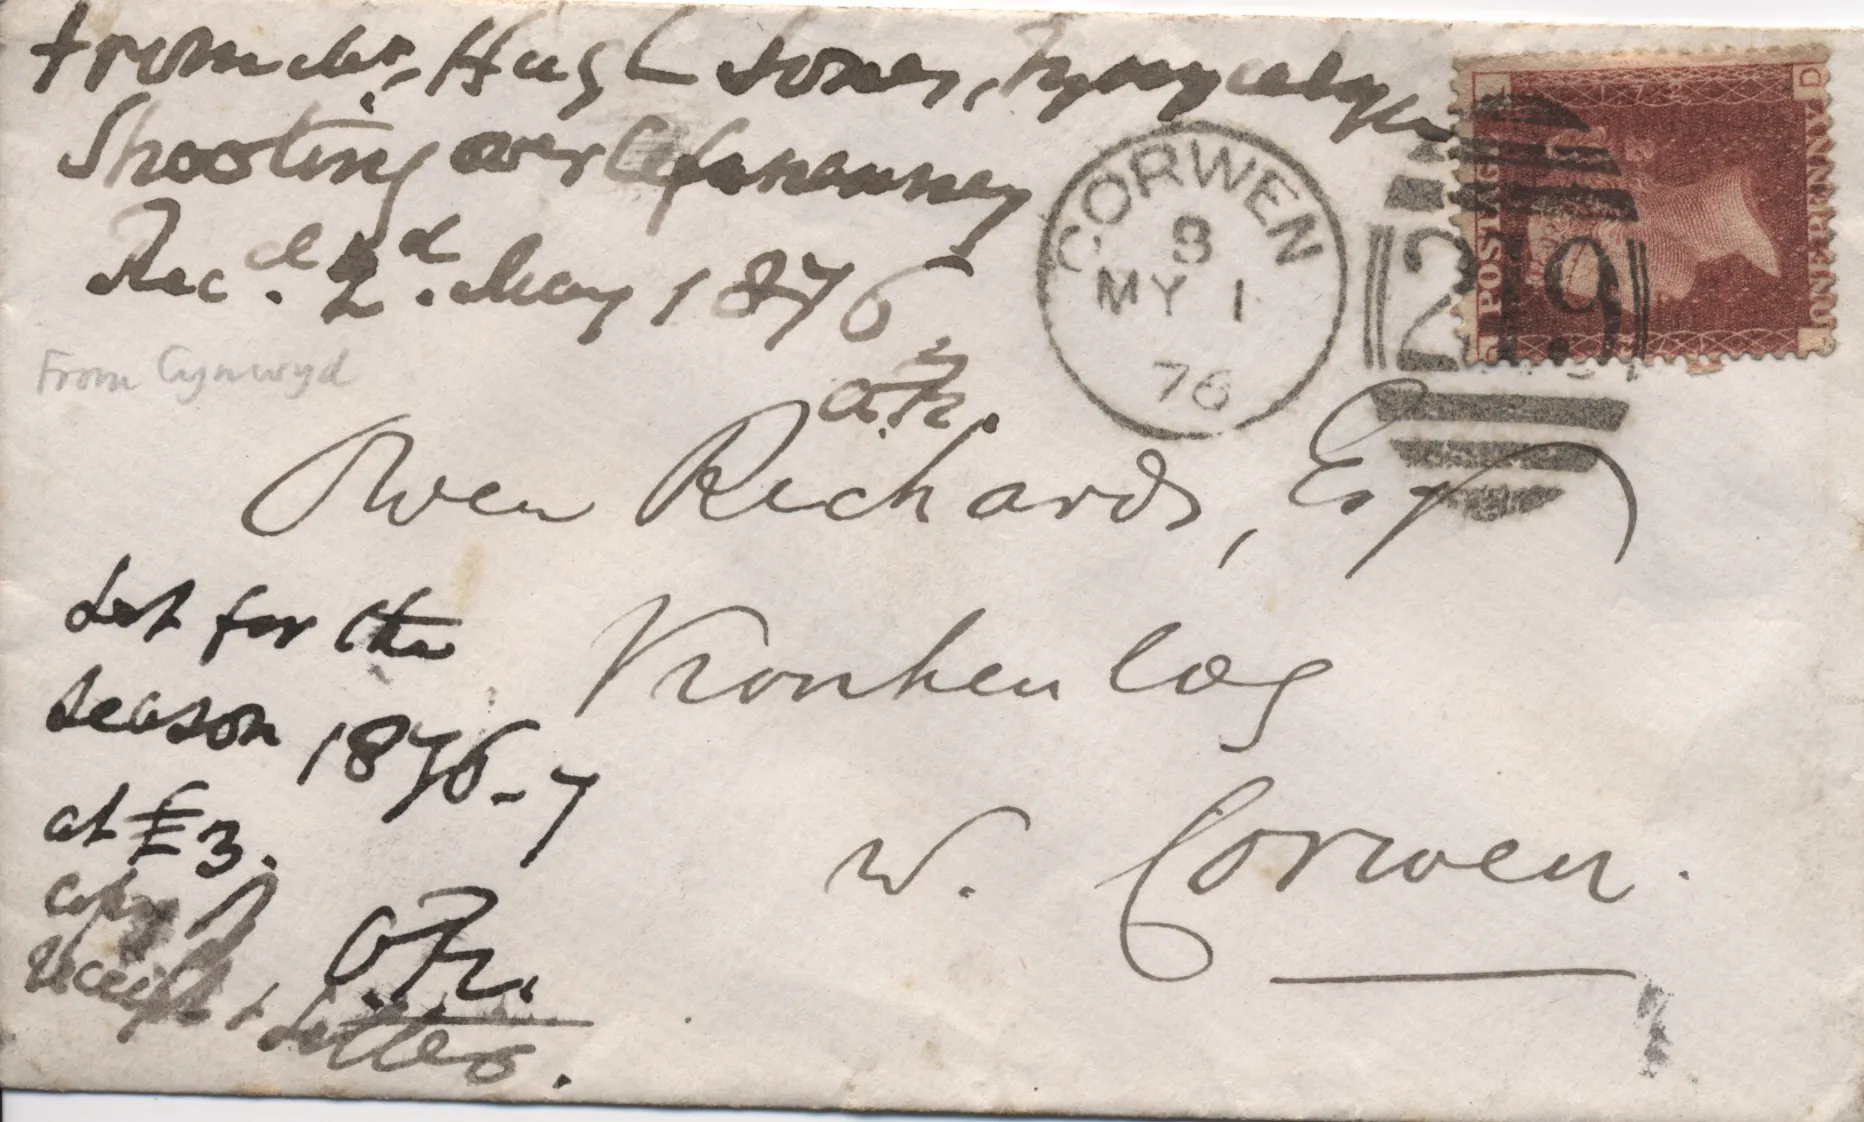 From Mr. Hugh Jones, Tynycelyn
Shooting over Cefn
Recd. 2d. May 1876,
O.R.
From Cynwyd
CORWEN
8
MY 1
76
219
POSTAGE
ONE PENNY
D
Owen Richards, Esqr
Vronheulog
W. Corwen.
Let for the
season 1876-7
at £3.
copy of
receipt & Letter.
OR.